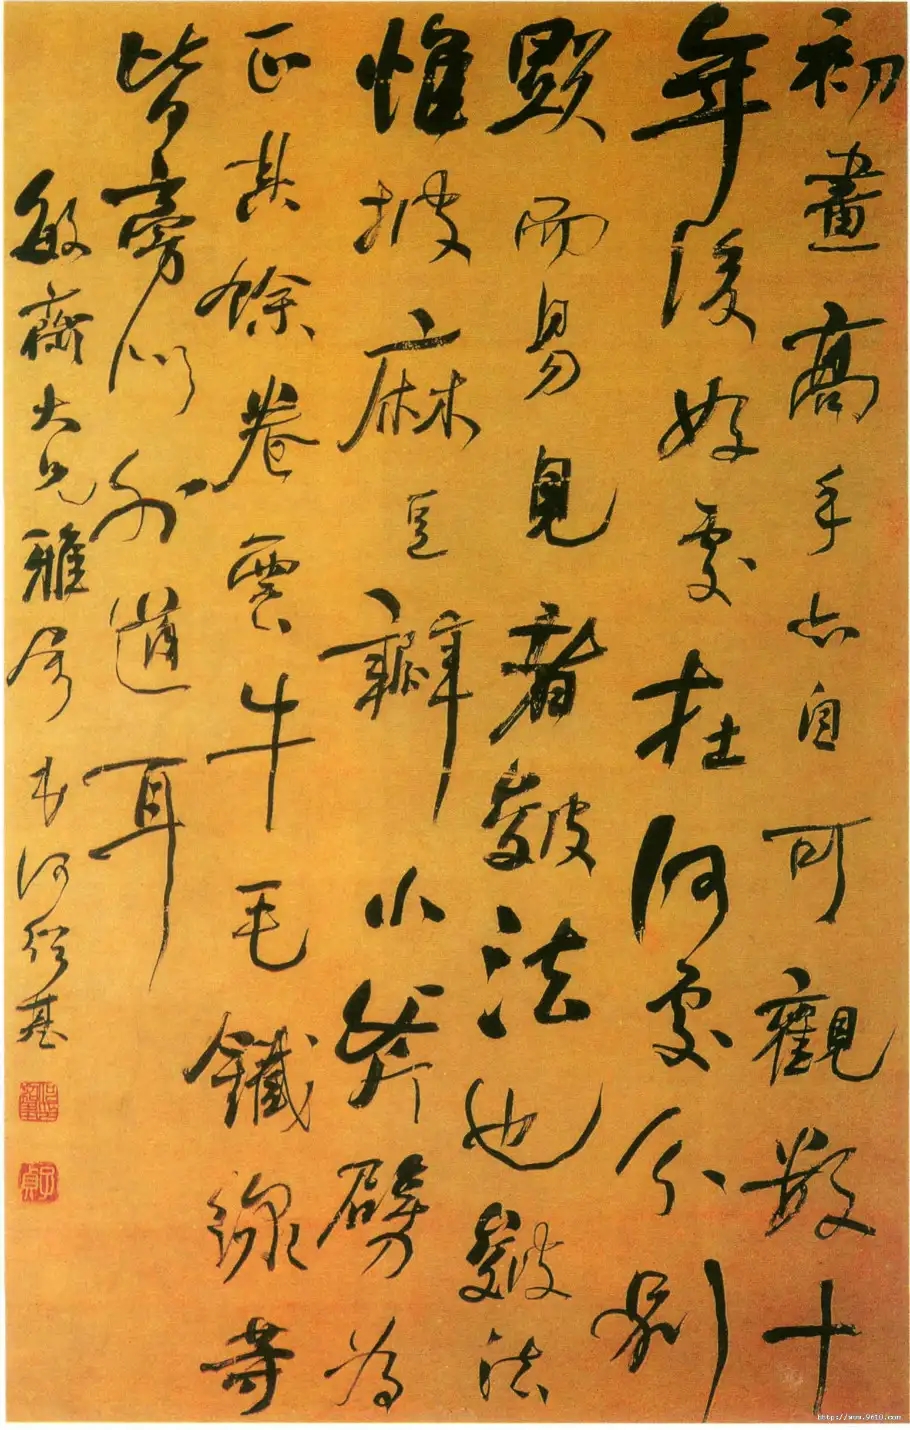 初畫高手亦自可觀數十
年後好處在何處分別
顯而易見者皴法也皴法
惟披麻豆瓣小斧劈為
正其餘卷雲牛毛鐵線等
皆旁門外道耳
敏齋大兄雅屬弟何紹基
子貞
http://www.9610.com